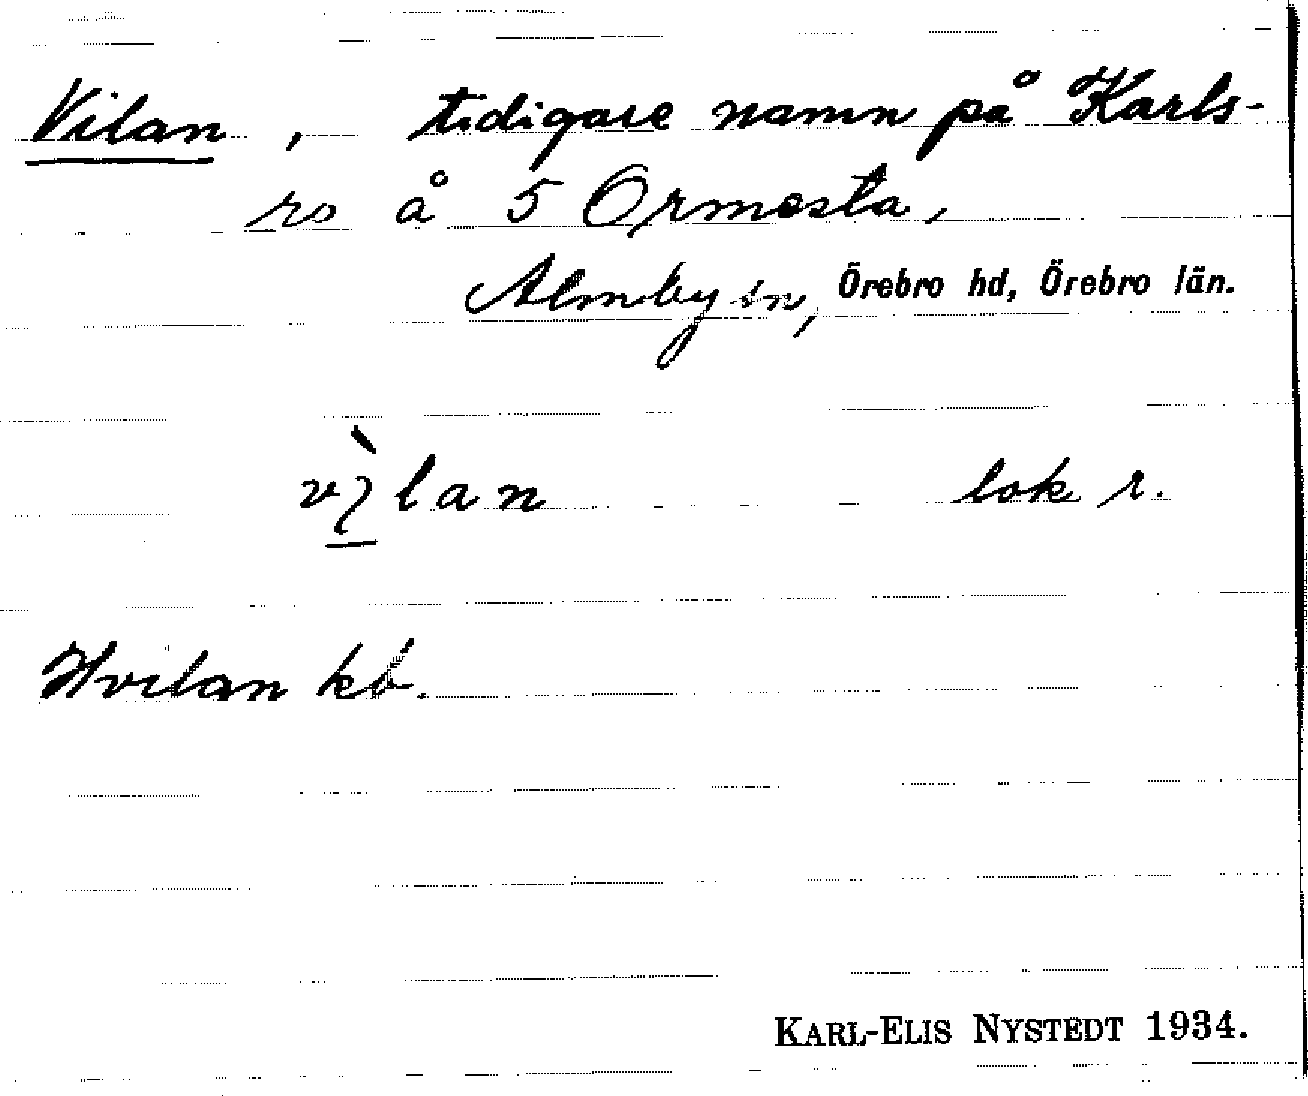 Vilan, tidigare namn på Karls-
ro å 5 Ormesta,
Almby sn, Örebro hd, Örebro län.
lan lok r.
Hvilan kb.
KARL-ELIS NYSTEDT 1934.